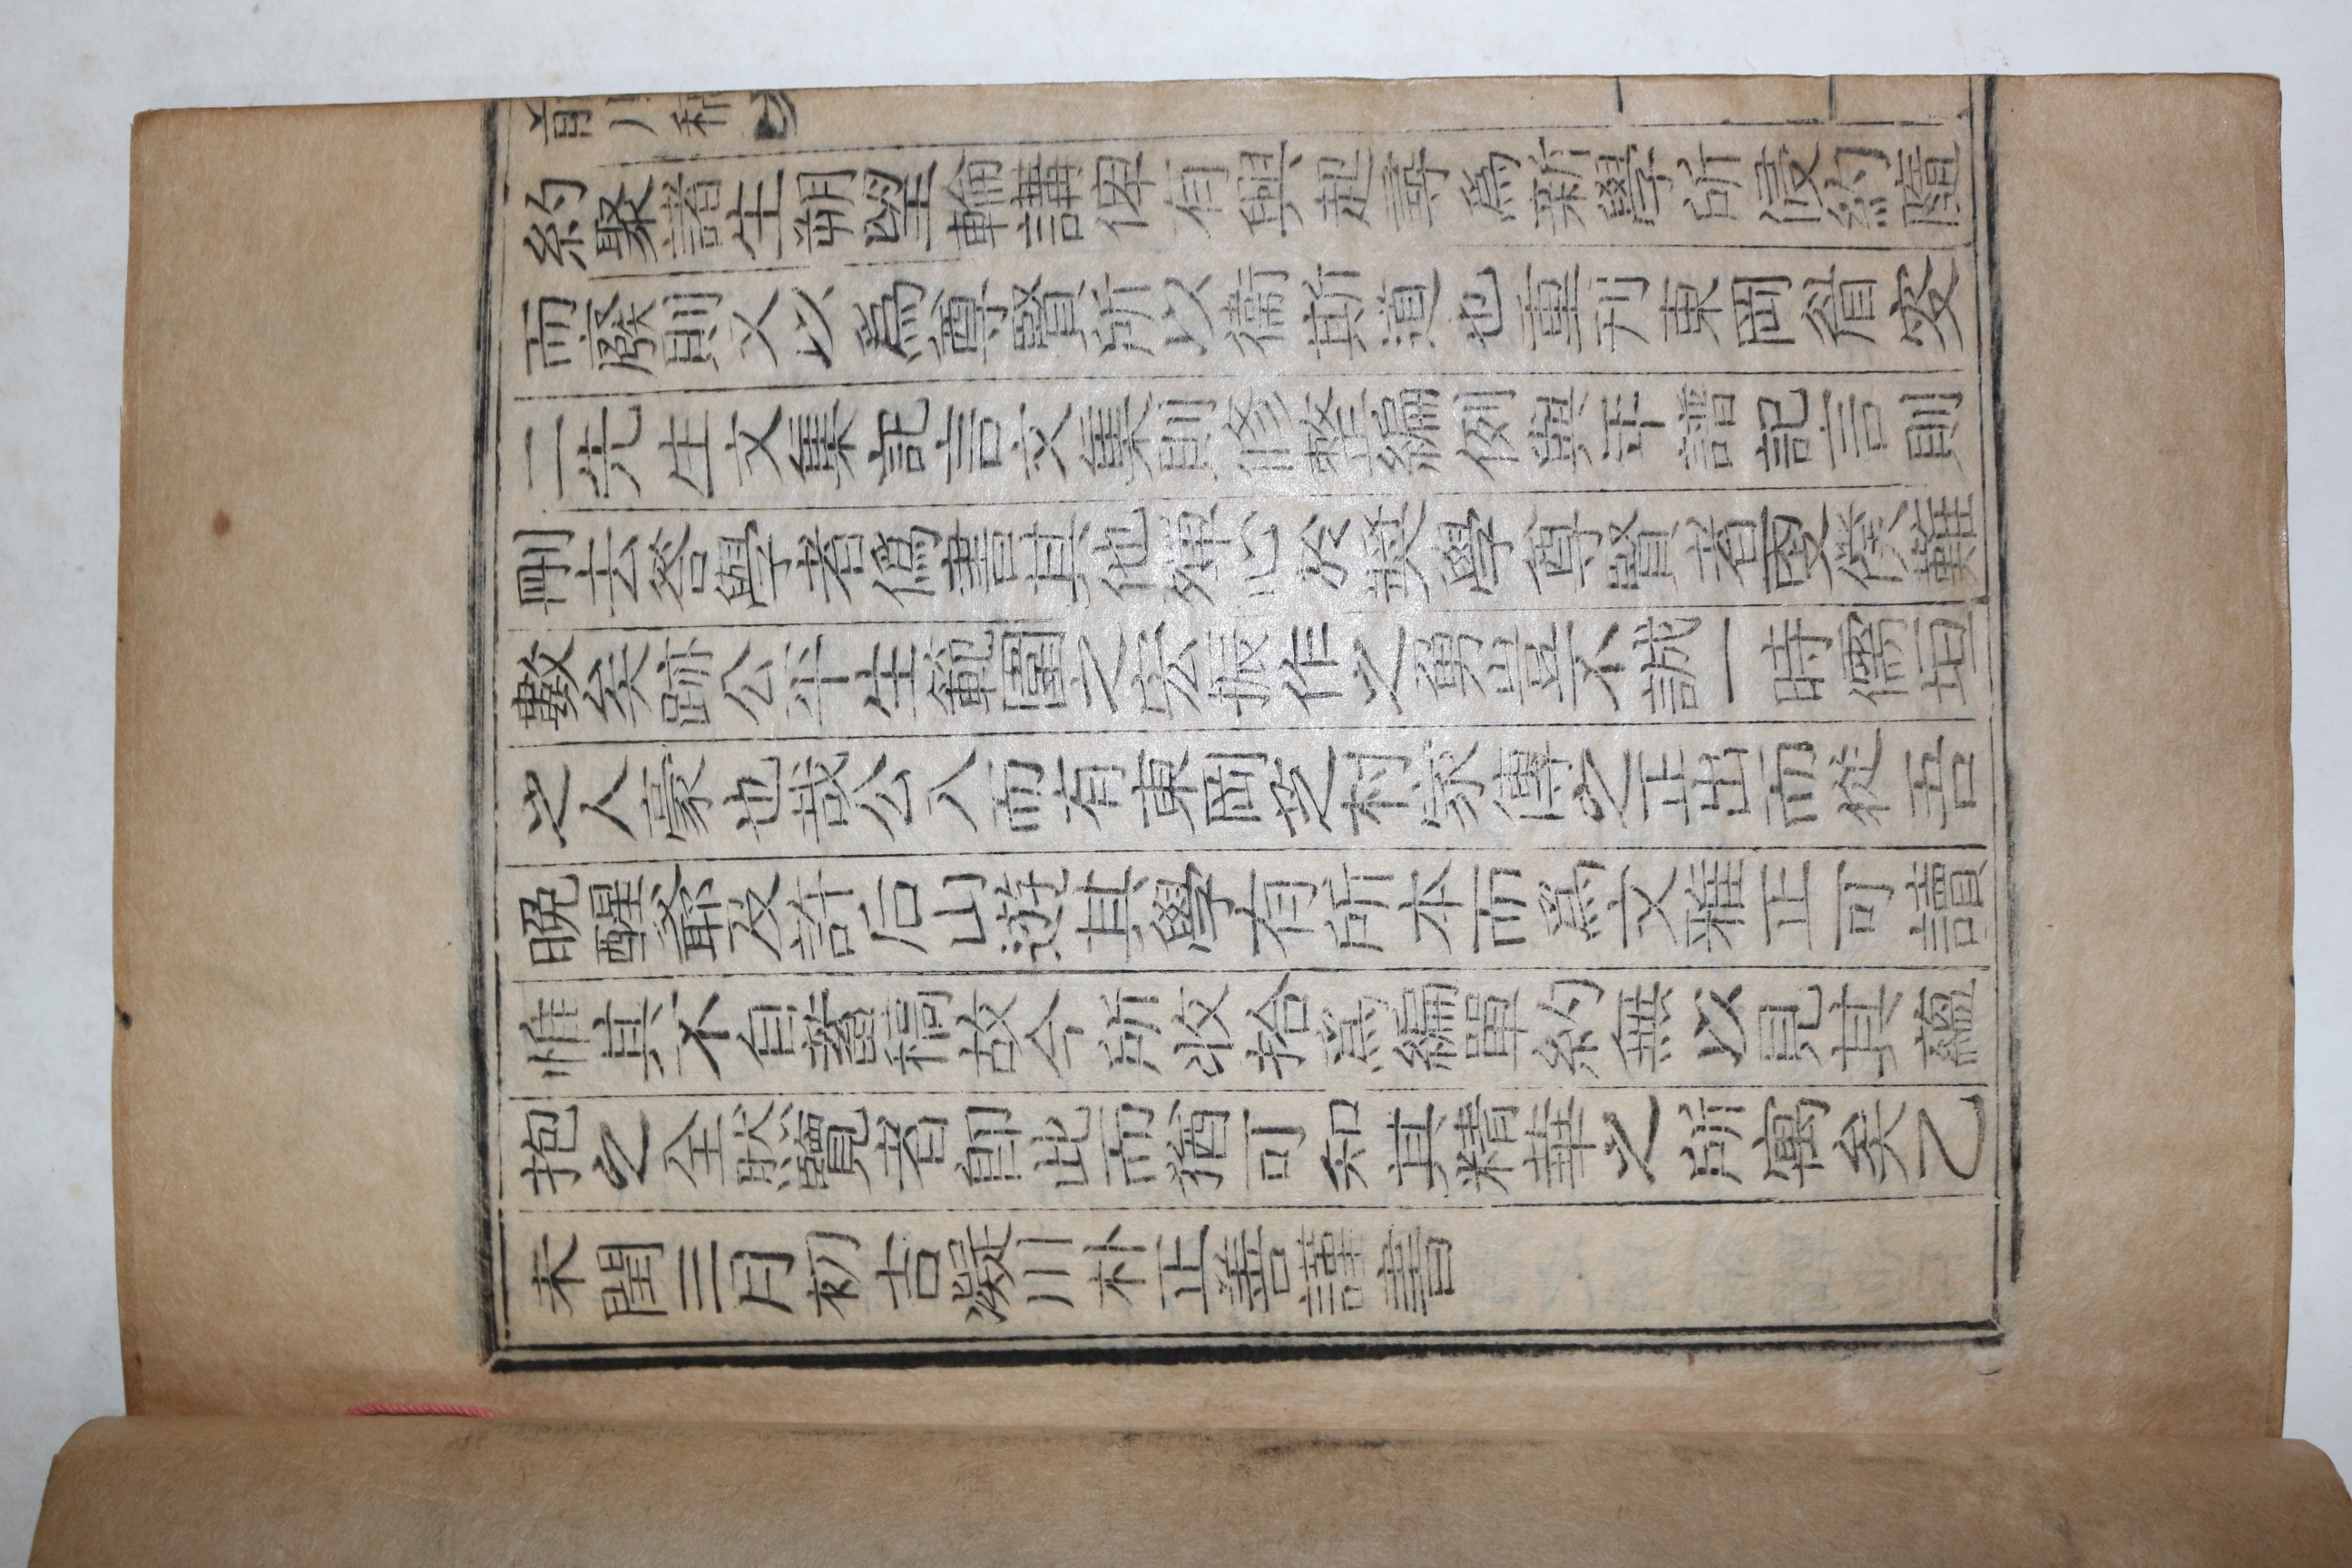 前川稿
約聚諸生朔望輪講俾有興起尋爲新學所侵約隨
而廢則又以爲尊賢所以衞斯道也重刊東岡眉叟
二先生文集記言文集則修整編例與年譜記言則
刪去答學者僞書其他殫心於奬學尊賢者更僕難
數矣跡公平生範圍之宏振作之勇豈不誠一時儒垣
之人豪也哉公入而有東岡芝村家傳之正出而從吾
晩醒爺及許后山遊其學有所本而爲文雅正可讀
惟其不自蓄稿故今所收拾爲編單約無以見其蘊
抱之全然覽者卽此而猶可知其精華之所寓矣乙
未閏三月初吉凝川朴正善謹書